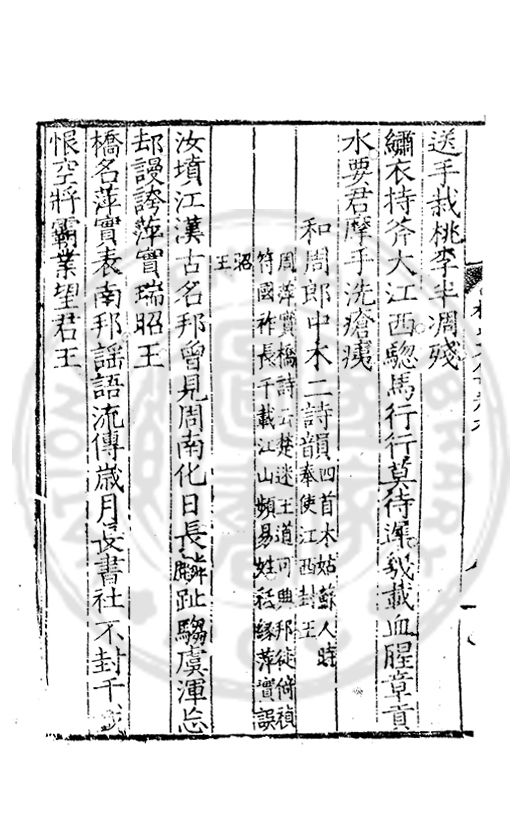 送手栽桃李半凋殘
繡衣持斧大江西驄馬行行莫待嘶幾載血腥章貢
水要君摩手洗瘡痍
和周郎中木二詩韻四首木姑蘇人時
音奉使江西封王
周萍實橋詩云楚迷王道可興邦徒倚禎
符國祚長千載江山頻易姓秪緣萍實誤
昭王
汝墳江漢古名邦曾見周南化日長麟趾騶虞渾忘
却謾誇萍實瑞昭王
橋名萍實表南邦謡語流傳歲月長書社不封千
恨空將霸業望君王